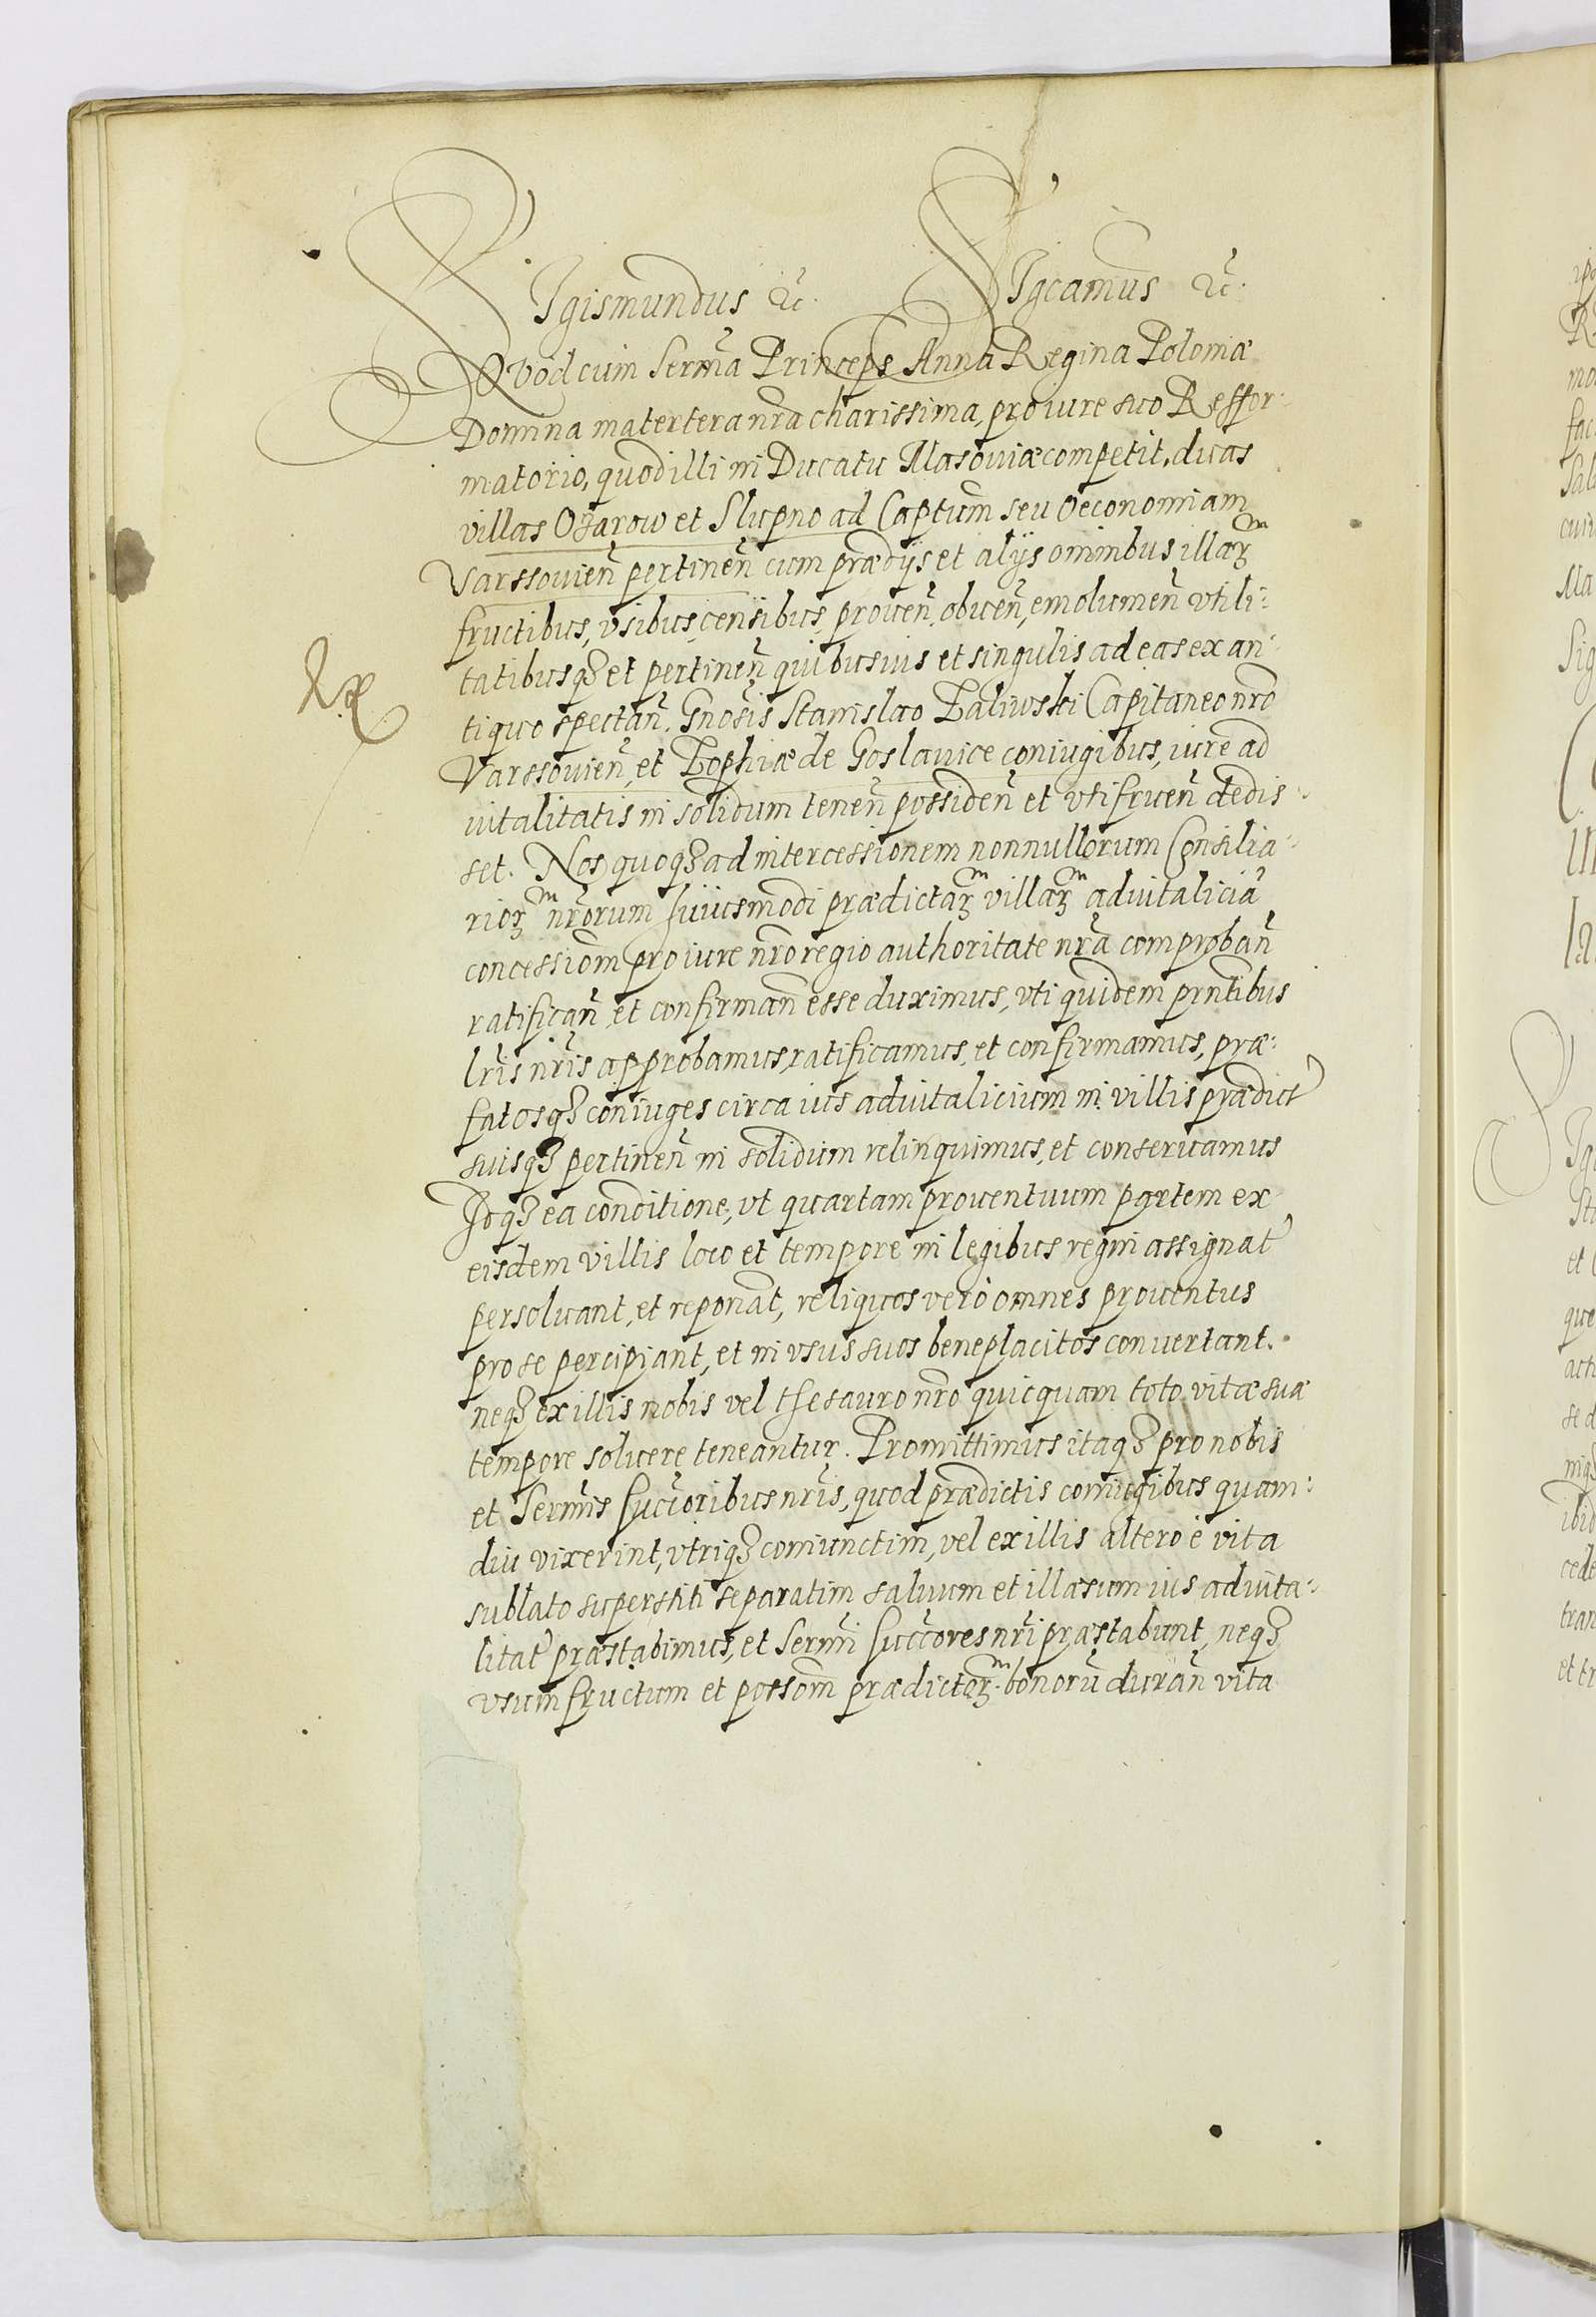 SIgismundus &c. SIgcamus &c.
QVod cum Serm̃a Princeps Anna Regina Poloniæ
Domina matertera nrã charissima, pro iure suo Reffor-
matorio, quod illi in Ducatu Masouiæ competit, duas
villas Ożarow et Slupno ad Captum̃ seu Oeconomiam
Varssouien̄ pertinen̄ cum prædijs et alijs omnibus illarꝫm
fructibus, vsibus, censibus, prouen̄, obuen̄, emolumen̄ vtili:
tatibusqꝫ et pertinen̄ quibusuis et singulis ad eas ex an-
tiquo spectan̄. Gnõsis Stanislao Zaliwski Capitaneo nrõ
Varssouien̄, et Zophiæ de Goslauice coniugibus, iure ad
uitalitatis in solidum tenen̄ possiden̄ et vtifruen̄ dedis-
set. Nos quoqꝫ ad intercessionem nonnullorum Consilia-
riorꝫm nrõrum huiusmodi prædictarꝫm villarꝫm aduitaliciã
concessiom̃ pro iure nrõ regio authoritate nrã comproban̄
ratifican̄, et confirman̄ esse duximus, vti quidem prñtibus
lrĩs nrĩs approbamus, ratificamus, et confirmamus, præ:
fatosqꝫ coniuges circa ius aduitalicium in villis prædict̃
suisqꝫ pertinen̄ in solidum relinquimus, et conseruamus
Idqꝫ ea conditione, vt quartam prouentuum partem ex
eisdem villis loco et tempore in legibus regni assignat̃
persoluant, et reponãt, reliquos verò omnes prouentus
pro se percipiant, et in vsus suos beneplacitos conuertant.
neqꝫ ex illis nobis vel thesauro nrõ quicquam toto vitæ suæ
tempore soluere teneantur. Promittimus itaqꝫ pro nobis
et Serm̃is succ̃oribus nrĩs, quod prædictis coniugibus quam:
diu vixerint, vtriqꝫ coniunctim, vel ex illis altero è vita
sublato superstiti separatim saluum et illæsum ius aduita:
litat̃ præstabimus, et Serm̃i succ̃ores nrĩ præstabunt, neqꝫ
vsumfructum et possom̃ prædictorꝫm bonorũ duran̄ vita